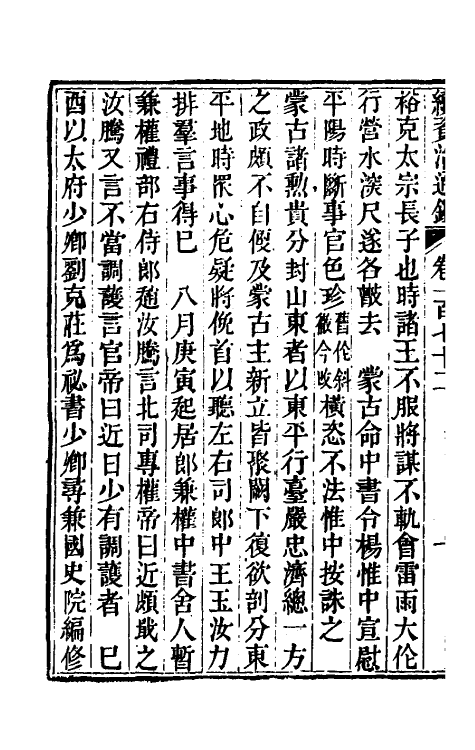 續資治通鑑 卷一百七十二
裕克太宗長子也時諸王不服將謀不軌會雷雨大作
行營水深尺遂各散去　蒙古命中書令楊惟中宣慰
平陽時斷事官色珍舊作斜徹今改橫恣不法惟中按誅之
蒙古諸勲貴分封山東者以東平行臺嚴忠濟總一方
之政頗不自便及蒙古主新立皆聚闕下復欲剖分東
平地時眾心危疑將俛首以聽左右司郎中王玉汝力
排羣言事得已　八月庚寅起居郎兼權中書舍人暫
兼權禮部右侍郎趙汝騰言北司專權帝曰近頗戢之
汝騰又言不當調護言官帝曰近日少有調護者　己
酉以太府少卿劉克莊爲祕書少卿尋兼國史院編修